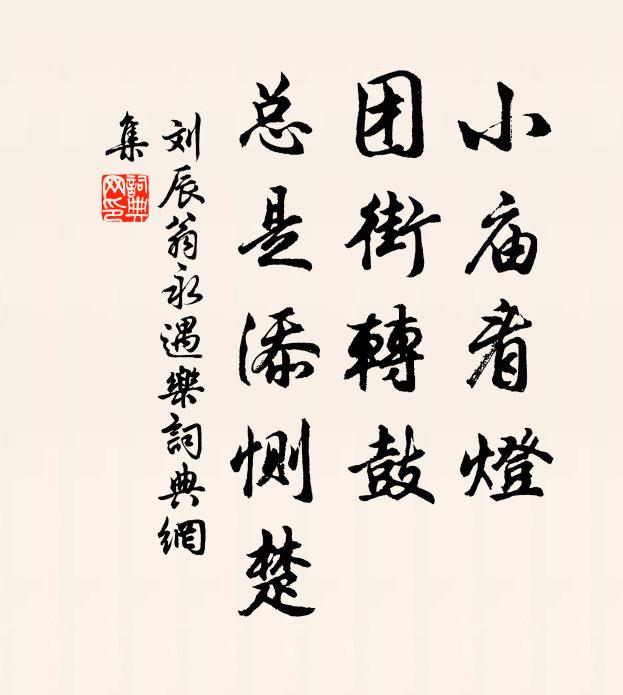 小庙看燈
团街轉鼓
总是添恻楚
刘辰翁永遇樂詞典網
集
詞典網印